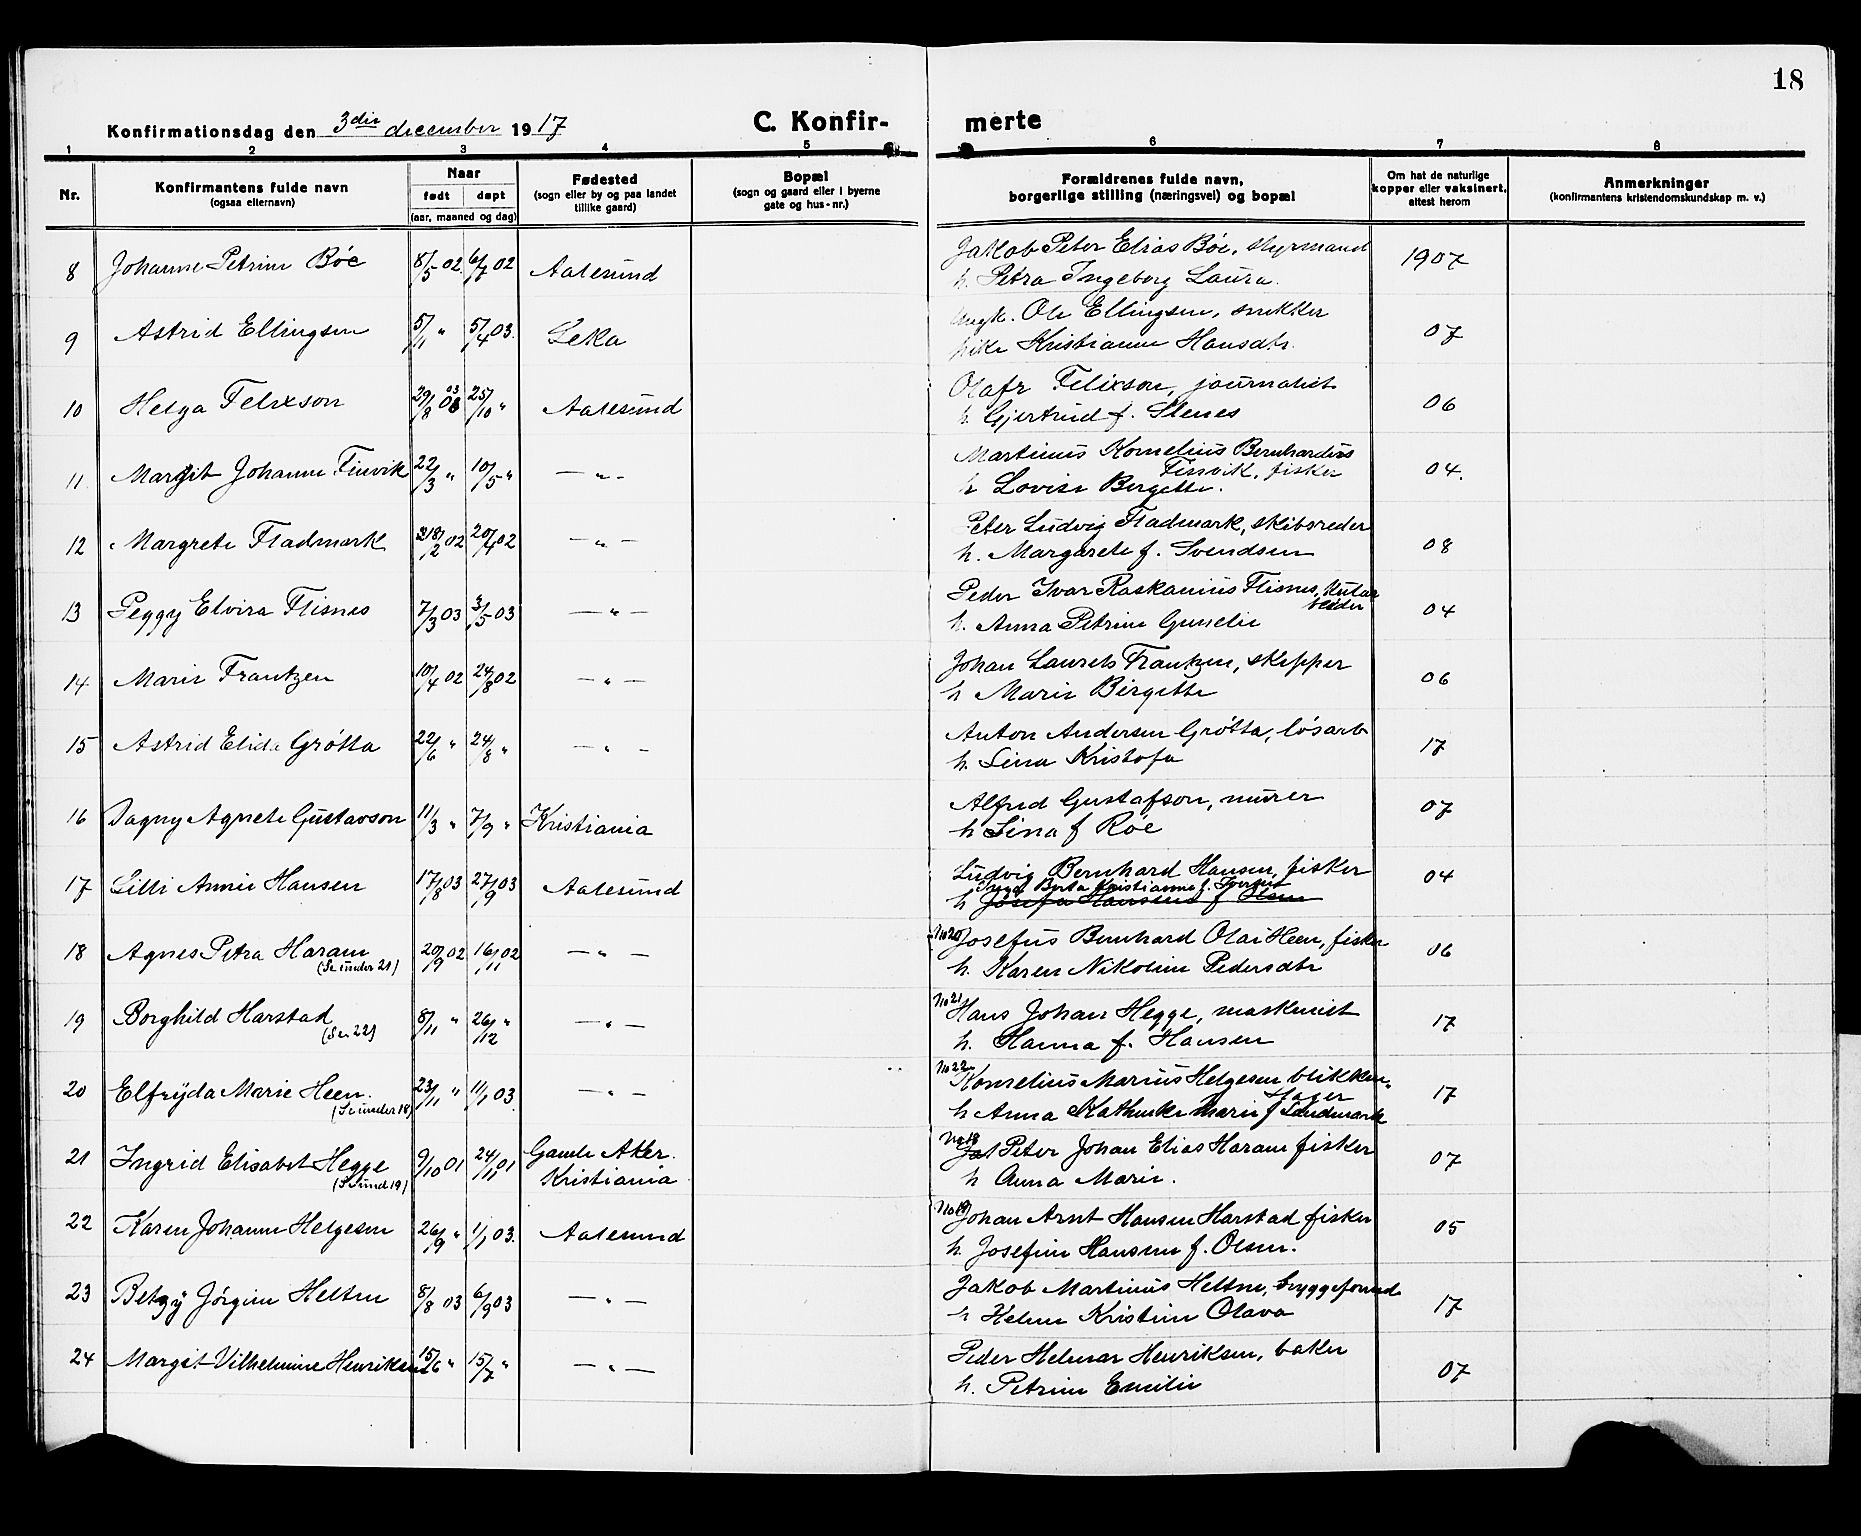 18
Konfirmationsdag den 3die december 1917
C. Konfir-
merte
1 2 3 4 5 6 7 8
Nr.
Konfirmantens fulde navn
(ogsaa efternavn)
Naar
født døpt
(aar, maaned og dag)
Fødested
(sogn eller by og paa landet
tillike gaard)
Bopæl
(sogn og gaard eller i byerne
gate og hus-nr.)
Forældrenes fulde navn,
borgerlige stilling (næringsvei) og bopæl
Om hat de naturlige
kopper eller vaksinert,
attest herom
Anmerkninger
(konfirmantens kristendomskundskap m. v.)
8 Johanne Petrine Bøe 8/5 02 6/7 02 Aalesund Jakob Peter Elias Bøe, styrmand 1907
h. Petra Ingeborg Laura.
9 Astrid Ellingsen 5/1 " 5/4 03. Leka Ungk. Ole Ellingsen, snekker 07
pike Kristianne Hansdtr.
10 Helga Felixson 29/8 03 25/10 " Aalesund Olafr Felixson, journalist 06
h. Gjertrud f. Stenes
11 Margit Johanne Finvik 22/3 " 10/5 " — " - Martinus Kornelius Bernhardus
Finvik, fisker 04.
h Lovise Bergette.
12 Margrete Fladmark 18/2 02 20/4 02 — " — Peter Ludvig Fladmark, skibsreder 08
h. Margarete f. Svendsen
13 Peggy Elvira Flisnes 7/3 03 3/5 03 — " — Peder Ivar Flisnes, 04
h. Anna Petrine Gunelie
14 Marie Frantzen 10/4 02 24/8 02 — " — Johan Laurets Frantzen, skipper 06
h Marie Birgette
15 Astrid Elida Grøtta 22/6 " 24/8 " — " — Anton Andersen Grøtta, løsarb 17
h. Lina Kristofa
16 Dagny Agnete Gustavson 11/3 " 7/9 " Kristiania Alfred Gustafson, murer 07
h Lina f Røe
17 Lilli Annie Hansen 17/8 03 27/9 03 Aalesund Ludvig Bernhard Hansen, fisker 04
Berta Kristianne f.
h Josefa Hansens f Olsen
18 Agnes Petra Haram 20/9 02 16/11 02 — " — No 20 Josefus Bernhard Olai Heen, fisker 06
(Se under 21) h. Karen Nikoline Pedersdtr
19 Borghild Harstad 8/11 " 26/12 " — " — No 21 Hans Johan Hegge, maskinist 17
(Se 22) h. Hanna f. Hansen
20 Elfryda Marie Heen. 23/11 " 11/1 03. — " — No 22 Kornelius Marius Helgesen blikken-
slager 17
(Se under 18) h Anna Kathinka Marie f Landmark
21 Ingrid Elisabet Hegge 9/10 01 24/11 01 Gamle Aker. No 18 Peter Johan Elias Haram fisker 07
(Se und 19) Kristiania h Anna Marie.
22 Karen Johanne Helgesen 26/9 " 1/1 03. Aalesund No 19 Johan Arnt Hansen Harstad fisker 05
h. Josefine Hansen f. Olsen.
23 Betzy Jørgine Heltne 8/8 03 6/9 03 — " — Jakob Martinus Heltne, bryggeformd 17
h Helene Kristine Olava
24 Margit Vilhelmine Henriksen 15/6 " 15/7 " — " — Peder Helmar Henriksen, baker 07
h. Petrine Emilie